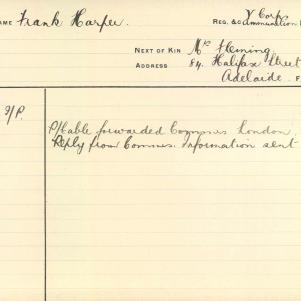 NAME Frank Harper.
V Corp
REG. & Communication
NEXT OF KIN Mrs Fleming.
ADDRESS 84. Halifax Street
Adelaide.
9/P.
P/Cable forwarded Commrs London
Reply from Commrs. Information sent